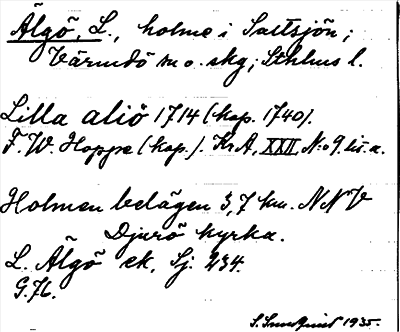 Älgö, L., holme i Saltsjön;
Värmdö m o. skg; Sthlms l.
Lilla aliö 1714 (kop. 1740).
F. W. Hoppe (kop.). KrA, XXII, N:o 9. lit. a.
Holmen belägen 3,7 km. NNV
Djurö kyrka.
L. Älgö ek, Sj. 234.
G.76.
S. Sundquist 1935.